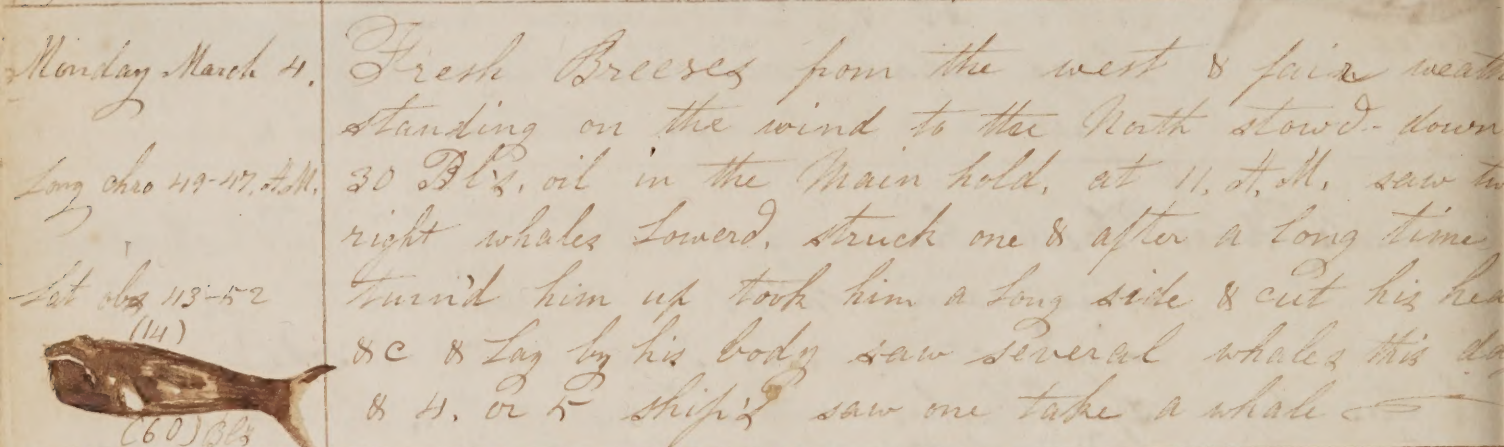 Monday March 4.
Long chro 49-47. A.M.
Lat obs 43-52
(14)
(60) Bls
Fresh Breezes from the west & fair weath
standing on the wind to the North stow'd - down
30 Bls. oil in the Main hold. at 11. A.M. saw tw
right whales Lowerd. struck one & after a long time
turn'd him up took him a long side & cut his hea
&c & Lay by his body saw several whales this da
& 4. or 5 ship's saw one take a whale